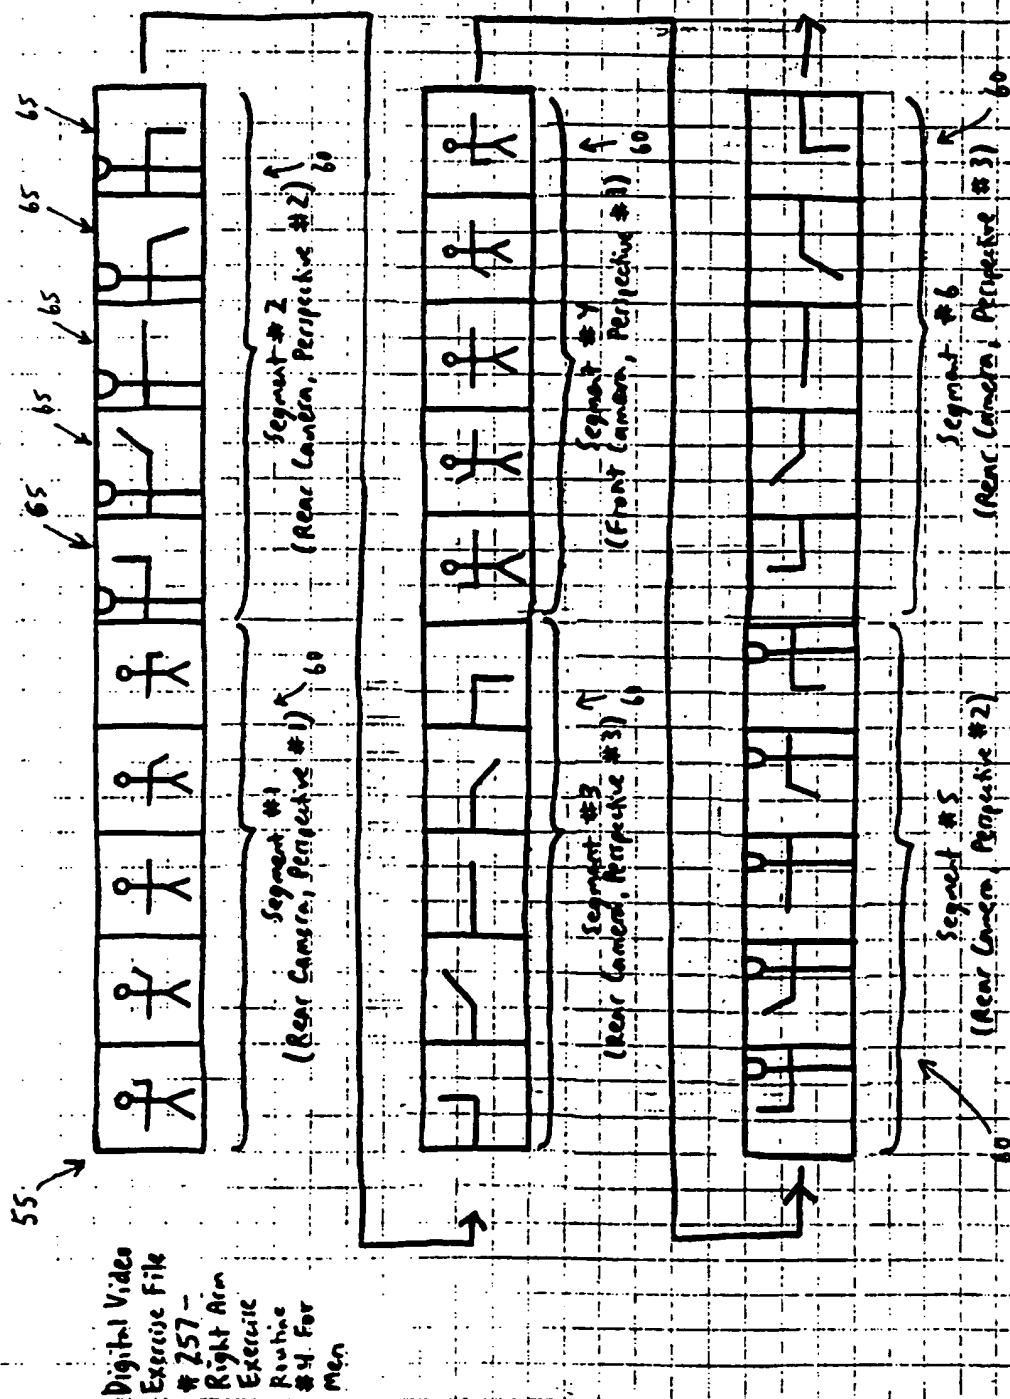 Digital Video
Exercise File
# 257 -
Right Arm
Exercise
Routine
#4 For
Men
55
65
65
65
65
65
Segment #1
(Rear Camera, Perspective #1)
60
Segment #2
(Rear Camera, Perspective #2)
60
Segment #3
(Rear Camera, Perspective #3)
60
Segment #4
(Front Camera, Perspective #1)
60
Segment #5
(Rear Camera, Perspective #2)
60
Segment #6
(Rear Camera, Perspective #3)
60